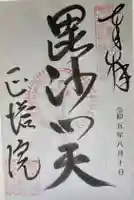 奉拝
毘沙門天
正塔院
令和五年八月十日